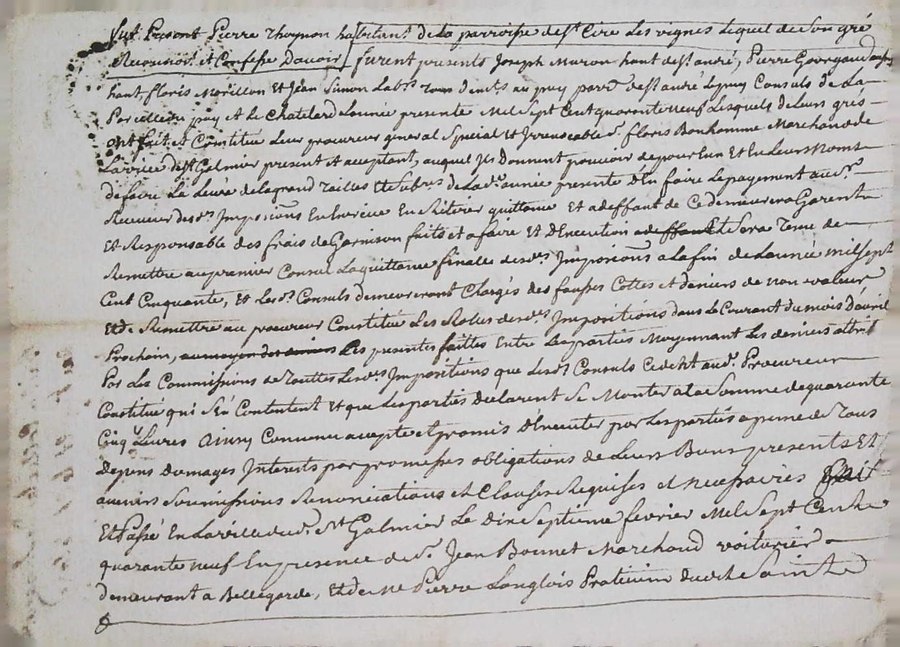 fut Present Pierre Thoynon habitant de la parroisse de st Cire Les vignes Lequel de son gré
Reconnoit et Confesse Davoir furent presents Joseph Muron hant de st andré, Pierre
hant floris Morillon et Jean Simon Labrs Tous au puy parr de st andré Le puy Consuls de La
Parcelle du puy et Le Chatelard Lannée presente Mil Sept Cent quarente neuf Lesquels de Leurs grés
ont fait et Constitué Leur procureur general Special et Irrevocable sr floris Bonhomme Marchand de
La ville de st Galmier present et acceptant, auquel Ils Donnent pouvoir de pour Eux et En Leurs Noms
de faire La Leve de la grand Tailles et de Lad. année presente D'En faire Le payement au sr
Receveur desds Impositions En Exercice En Retirer quittance Et a deffaut de Ce demeurera Garent
Et Responsable des frais de Garnison faits et a faire Et D'Execution Et Sera Tenu de
Remettre au premier Consul La quittance finalle desds Impositions a La fin de Lannée mil sept
Cent Cinquante, Et Lesds Consuls demeureront Chargés des fausses Cottes et deniers de non valeur
Et de Remettre au procureur Constitué Les Rolles desds Impositions dans Le Courant du mois D'avril
Prochain, Les presentes faittes Entre Les parties Moyennant Les deniers attribs
Par Les Commissions de Touttes Lesds Impositions que Lesds Consuls Cedent aud. Procureur
Constitué qui s'En Contentent Et que Les parties declarent Se Monter a La Somme de quarante
Cinq Livres Ainsy Convenu accepté et promis D'Executer par Les parties a peine de Tous
Depens Domages Interets par promesses obligations de Leurs Biens presents Et
avenirs Soumissions Renonciations et Clauses Requises et necessaires fait
Et Passé En La ville dud. st Galmier Le dix Septieme fevrier Mil Sept Cent
quarante neuf En presence de sr Jean Bonnet Marchand voiturier
demeurant a Bellegarde, Et de Me Pierre Langlois Praticien dud st